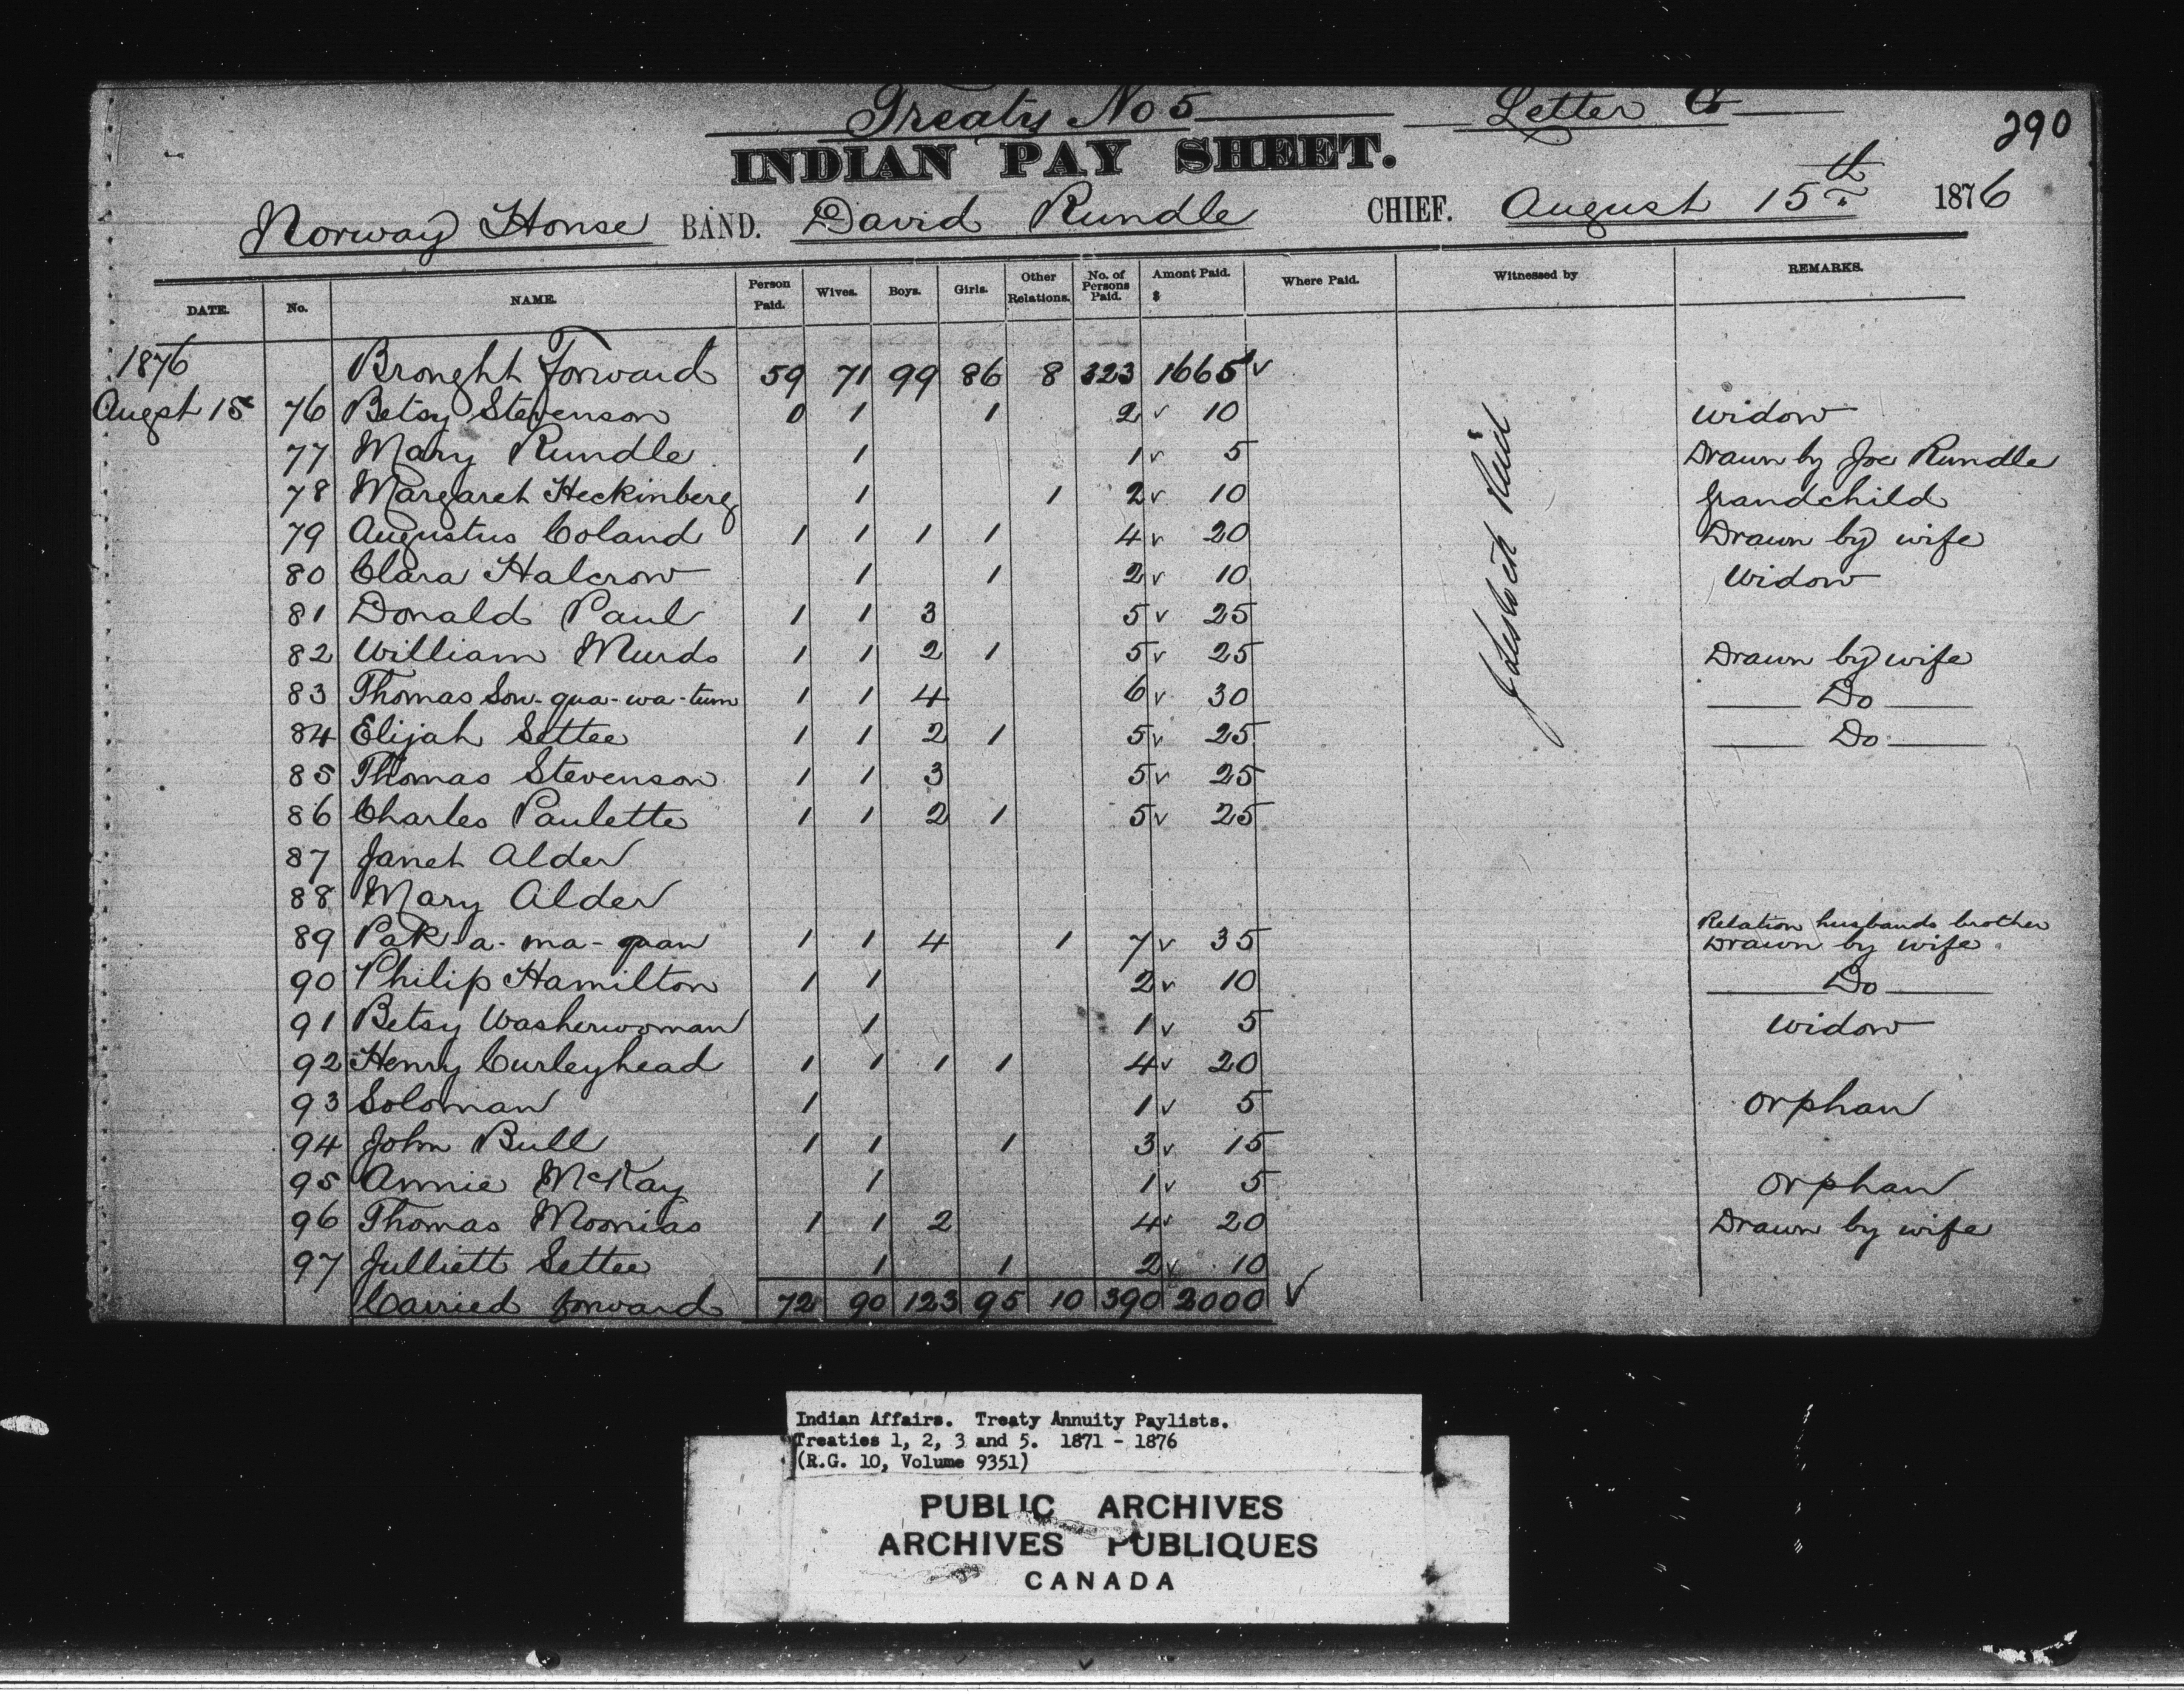 Treaty No 5 Letter G
290
INDIAN PAY SHEET.
Norway House BAND. David Rundle CHIEF. August 15th 1876
DATE. No. NAME. Person Paid. Wives. Boys. Girls. Other Relations. No. of Persons Paid. Amont Paid. $ Where Paid. Witnessed by REMARKS.
1876 Brought Forward 59 71 99 86 8 323 1665 ✓
Augst 15 76 Betsy Stevenson 0 1 1 2 ✓ 10 Widow
77 Mary Rundle 1 1 ✓ 5 Drawn by Joe Rundle
78 Margaret Heckinberg 1 1 2 ✓ 10 Grandchild
79 Augustus Coland 1 1 1 1 4 ✓ 20 Drawn by wife
80 Clara Halcrow 1 1 2 ✓ 10 Widow
81 Donald Paul 1 1 3 5 ✓ 25
82 William Murdo 1 1 2 1 5 ✓ 25 Drawn by wife
83 Thomas Sow-qua-wa-tum 1 1 4 6 ✓ 30 Do
84 Elijah Settee 1 1 2 1 5 ✓ 25 Do
85 Thomas Stevenson 1 1 3 5 ✓ 25
86 Charles Paulette 1 1 2 1 5 ✓ 25
87 Janet Alder
88 Mary Alder
89 Pak-a-ma-quan 1 1 4 1 7 ✓ 35 Relation husbands brother
Drawn by wife
90 Philip Hamilton 1 1 2 ✓ 10 Do
91 Betsy Washerwoman 1 1 ✓ 5 Widow
92 Henry Curleyhead 1 1 1 1 4 ✓ 20
93 Soloman 1 1 ✓ 5 Orphan
94 John Bull 1 1 1 3 ✓ 15
95 Annie McKay 1 1 ✓ 5 Orphan
96 Thomas Moonias 1 1 2 4 ✓ 20 Drawn by wife
97 Julliett Settee 1 1 2 ✓ 10
Carried forward 72 90 123 95 10 390 2000 ✓
Reid
Indian Affairs. Treaty Annuity Paylists.
Treaties 1, 2, 3 and 5. 1871 - 1876
(R.G. 10, Volume 9351)
PUBLIC ARCHIVES
ARCHIVES PUBLIQUES
CANADA